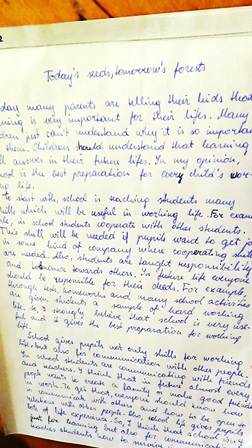 Today's seeds, tomorrow's forests
day many parents are telling their kids that
ning is very important for their lifes. Many
dren just can't understand why it is so importan
them. Children should understand that learning
ll answer in their future lifes. In my opinion,
ool is the best preparation for every child's wor-
ng life.
To start with, school is teaching students many
skills which will be useful in working life. For exam
in school students cooperate with other students.
This skill will be needed if pupils want to get jo
in some kind of company where cooperating skills
are needed. Also, students are taught responsibility
and towards others. In future life everyone
should be responsible for their deeds. For example
through tests, homeworks and many school activities
are given students a sample of hard working
life. So, I strongly believe that school is very use-
ful and it gives the best preparation for working
life.
School gives pupils not only skills for working
life but also for communication with other people.
In school students are communicating with friends
and teachers. I think that in future school every
people wants to create a family or make good
in work. To get that, everyone should know how
to communicate with others and how to be in
relation with other people. Also, school life gives pupils a
lot of life experience. So, I think that school is not
just for learning but also for communication. It
teaches students how to survive in